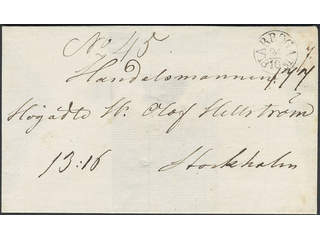 No 45
ARBOGA
Handelsmannen
Högädle Hr Olof Hellström
13:16 Stockholm